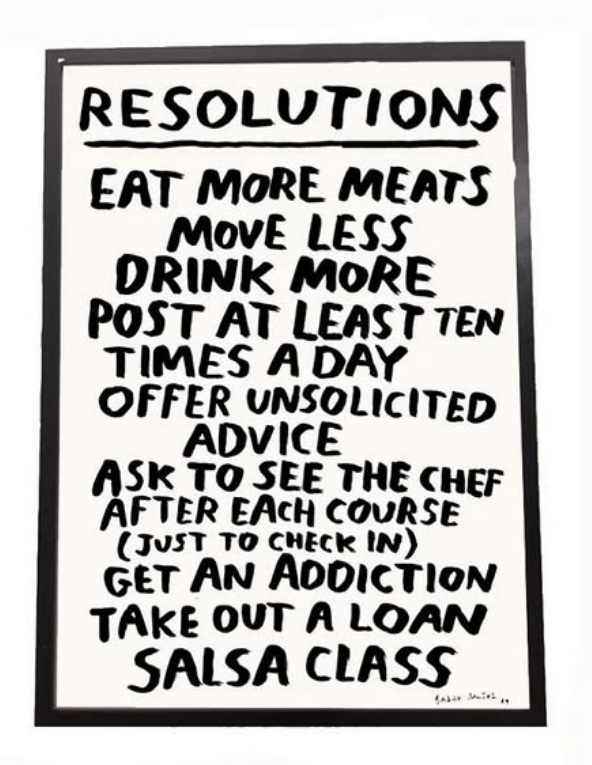 RESOLUTIONS
EAT MORE MEATS
MOVE LESS
DRINK MORE
POST AT LEAST TEN
TIMES A DAY
OFFER UNSOLICITED
ADVICE
ASK TO SEE THE CHEF
AFTER EACH COURSE
(JUST TO CHECK IN)
GET AN ADDICTION
TAKE OUT A LOAN
SALSA CLASS